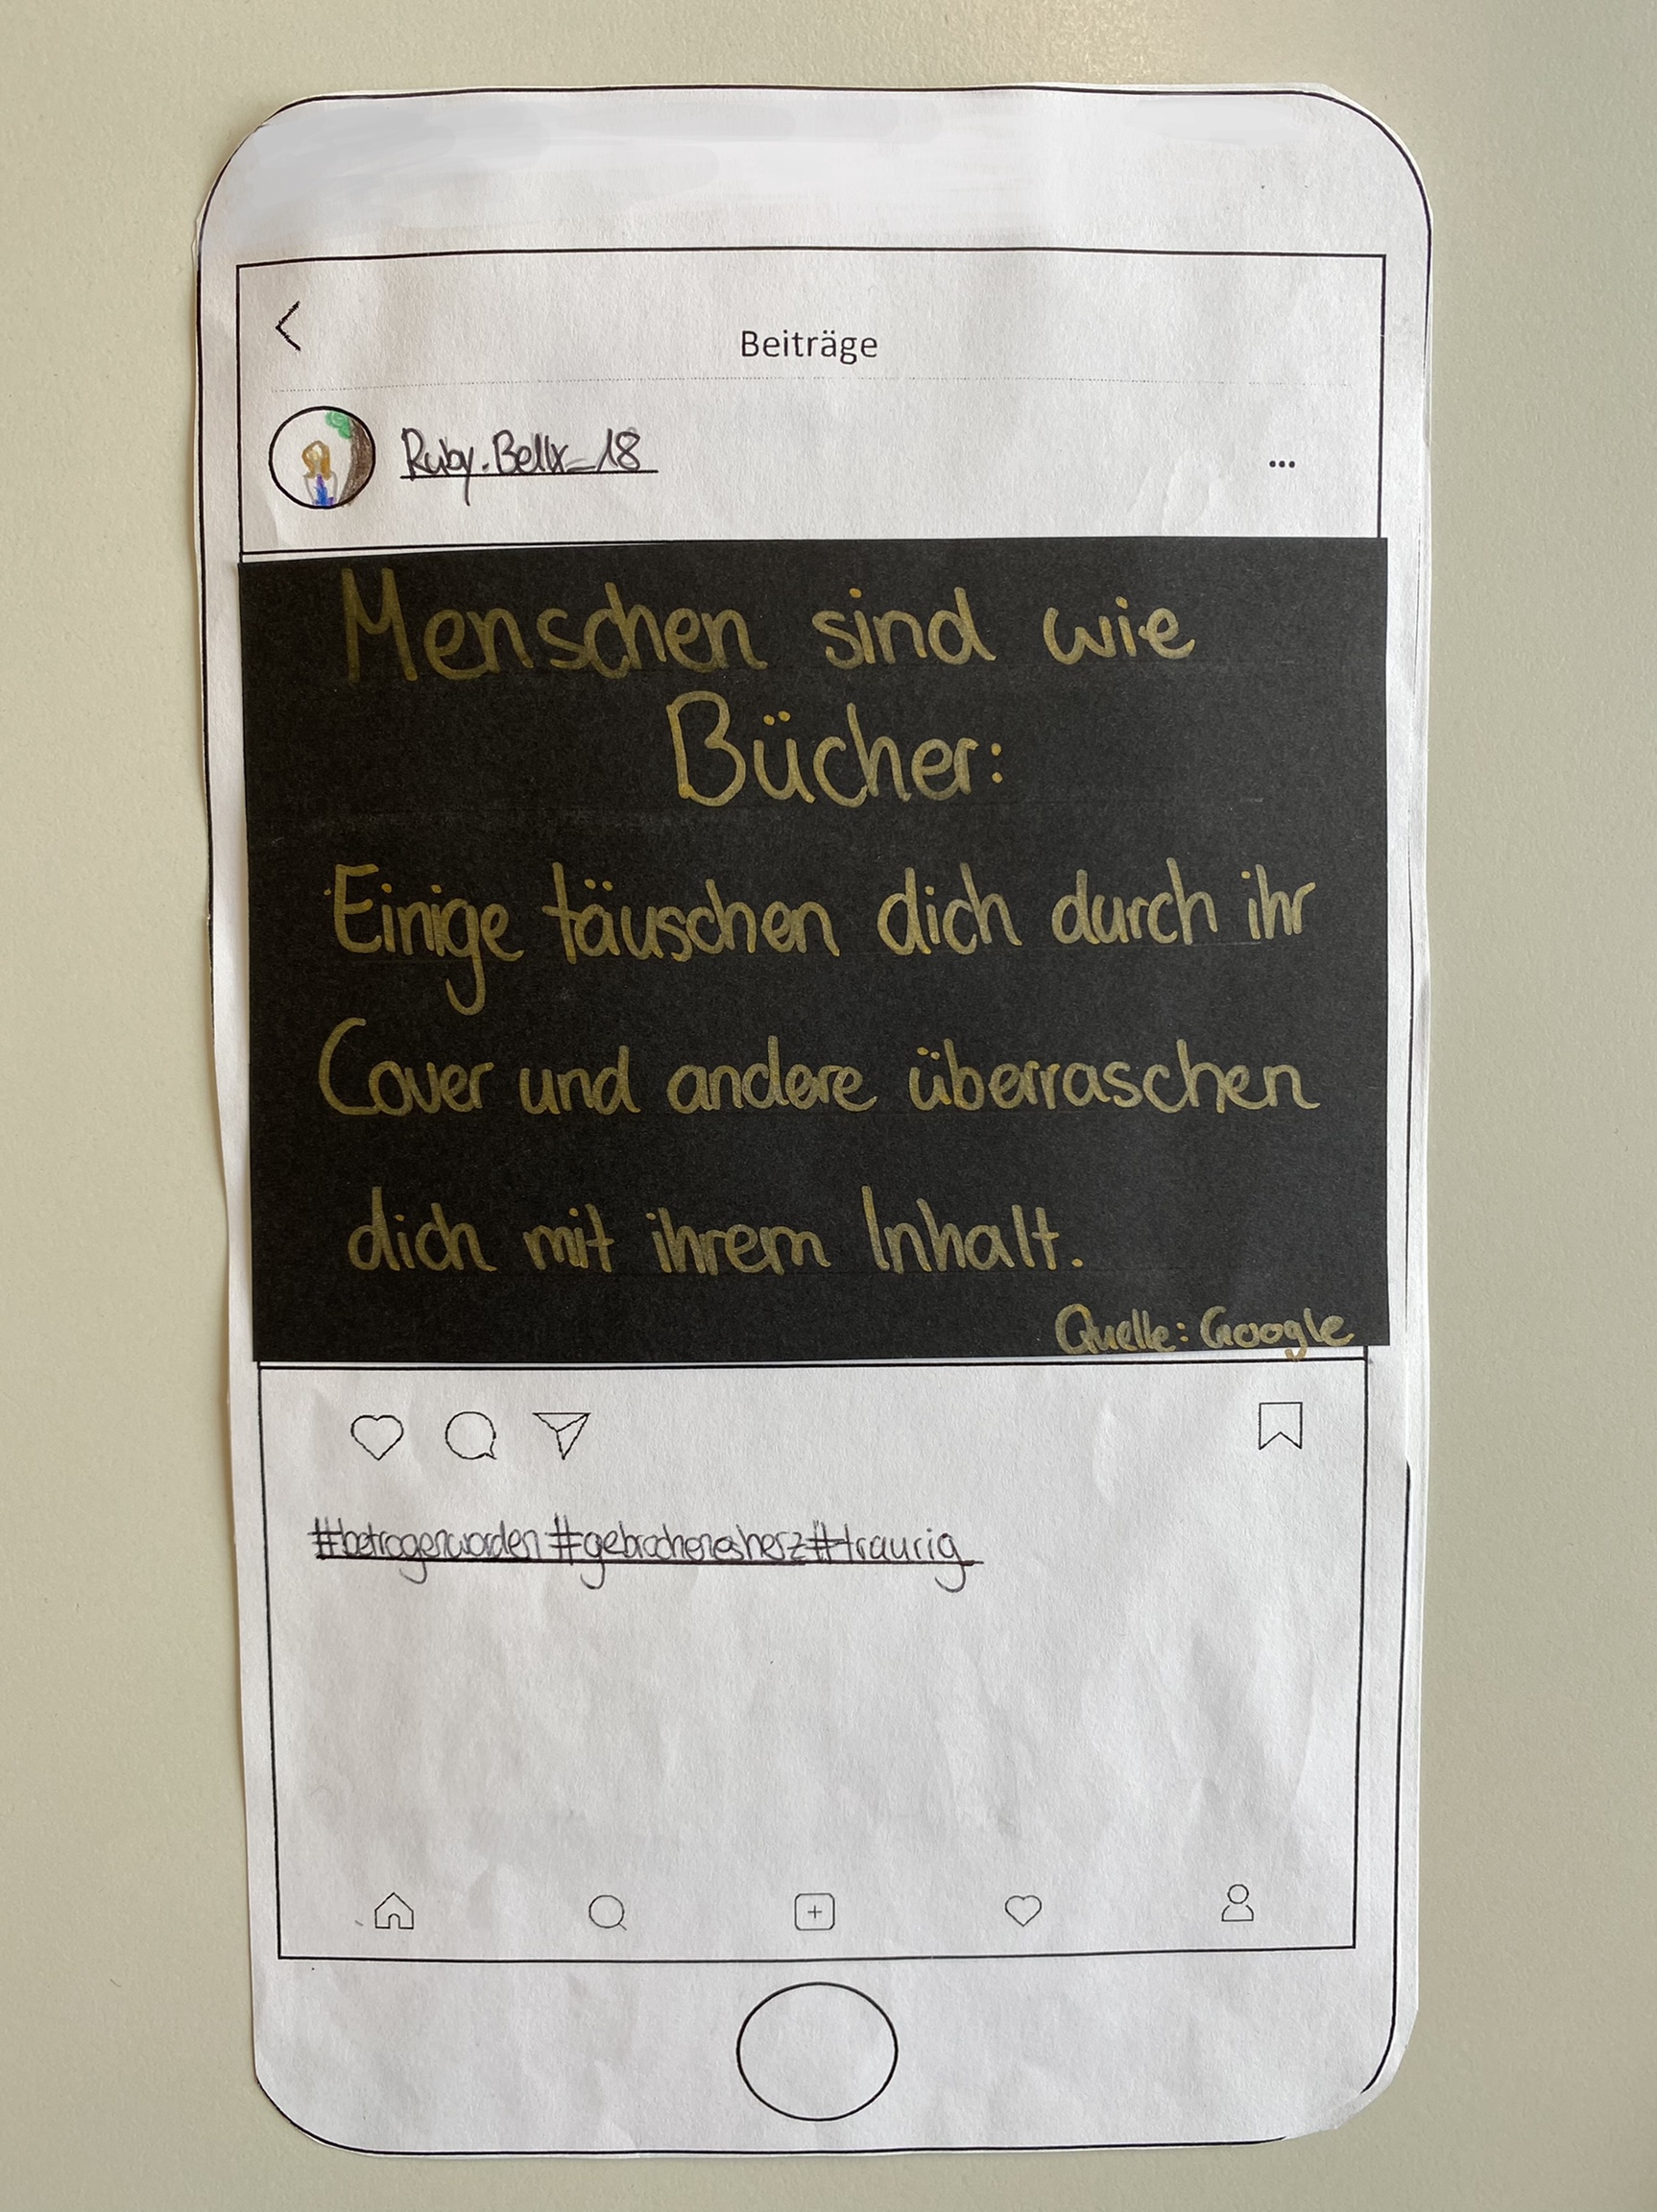 Beiträge
Ruby.Bellx_18
...
Menschen sind wie
Bücher:
Einige täuschen dich durch ihr
Cover und andere überraschen
dich mit ihrem Inhalt.
Quelle: Google
#betrogenworden #gebrochenesherz #traurig